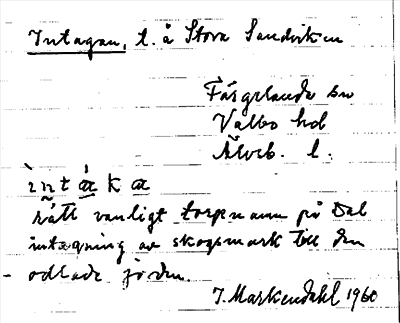 Intagan, t. å Stora Sandviken
Färgelanda sn
Valbo hd
Älvsb. l.
ìntákα
rätt vanligt torpnamn på Dal
intagning av skogsmark till den
odlade jorden.
J. Markendahl 1960